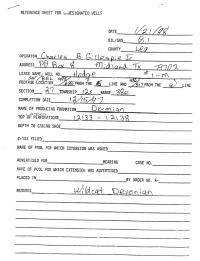 REFERENCE SHEET FOR UNDESIGNATED WELLS
DATE 1/21/98
OIL/GAS Oil
COUNTY Lea
OPERATOR Charles B Gillespie Jr
ADDRESS PO Box 8 Midland Tx 79702
LEASE NAME, WELL NO. Hodge #1-M
FOOTAGE LOCATION FROM THE S LINE AND FROM THE W LINE
SECTION 27 TOWNSHIP 12S RANGE 38E
COMPLETION DATE 12/15/97
NAME OF PRODUCING FORMATION Devonian
TOP OF PERFORATIONS 12133 - 12138
DEPTH TO CASING SHOE
C-123 FILED
NAME OF POOL FOR WHICH EXTENSION WAS ASKED
ADVERTISED FOR HEARING CASE NO.
NAME OF POOL FOR WHICH EXTENSION WAS ADVERTISED
PLACED IN BY ORDER NO. R-
Wildcat Devonian